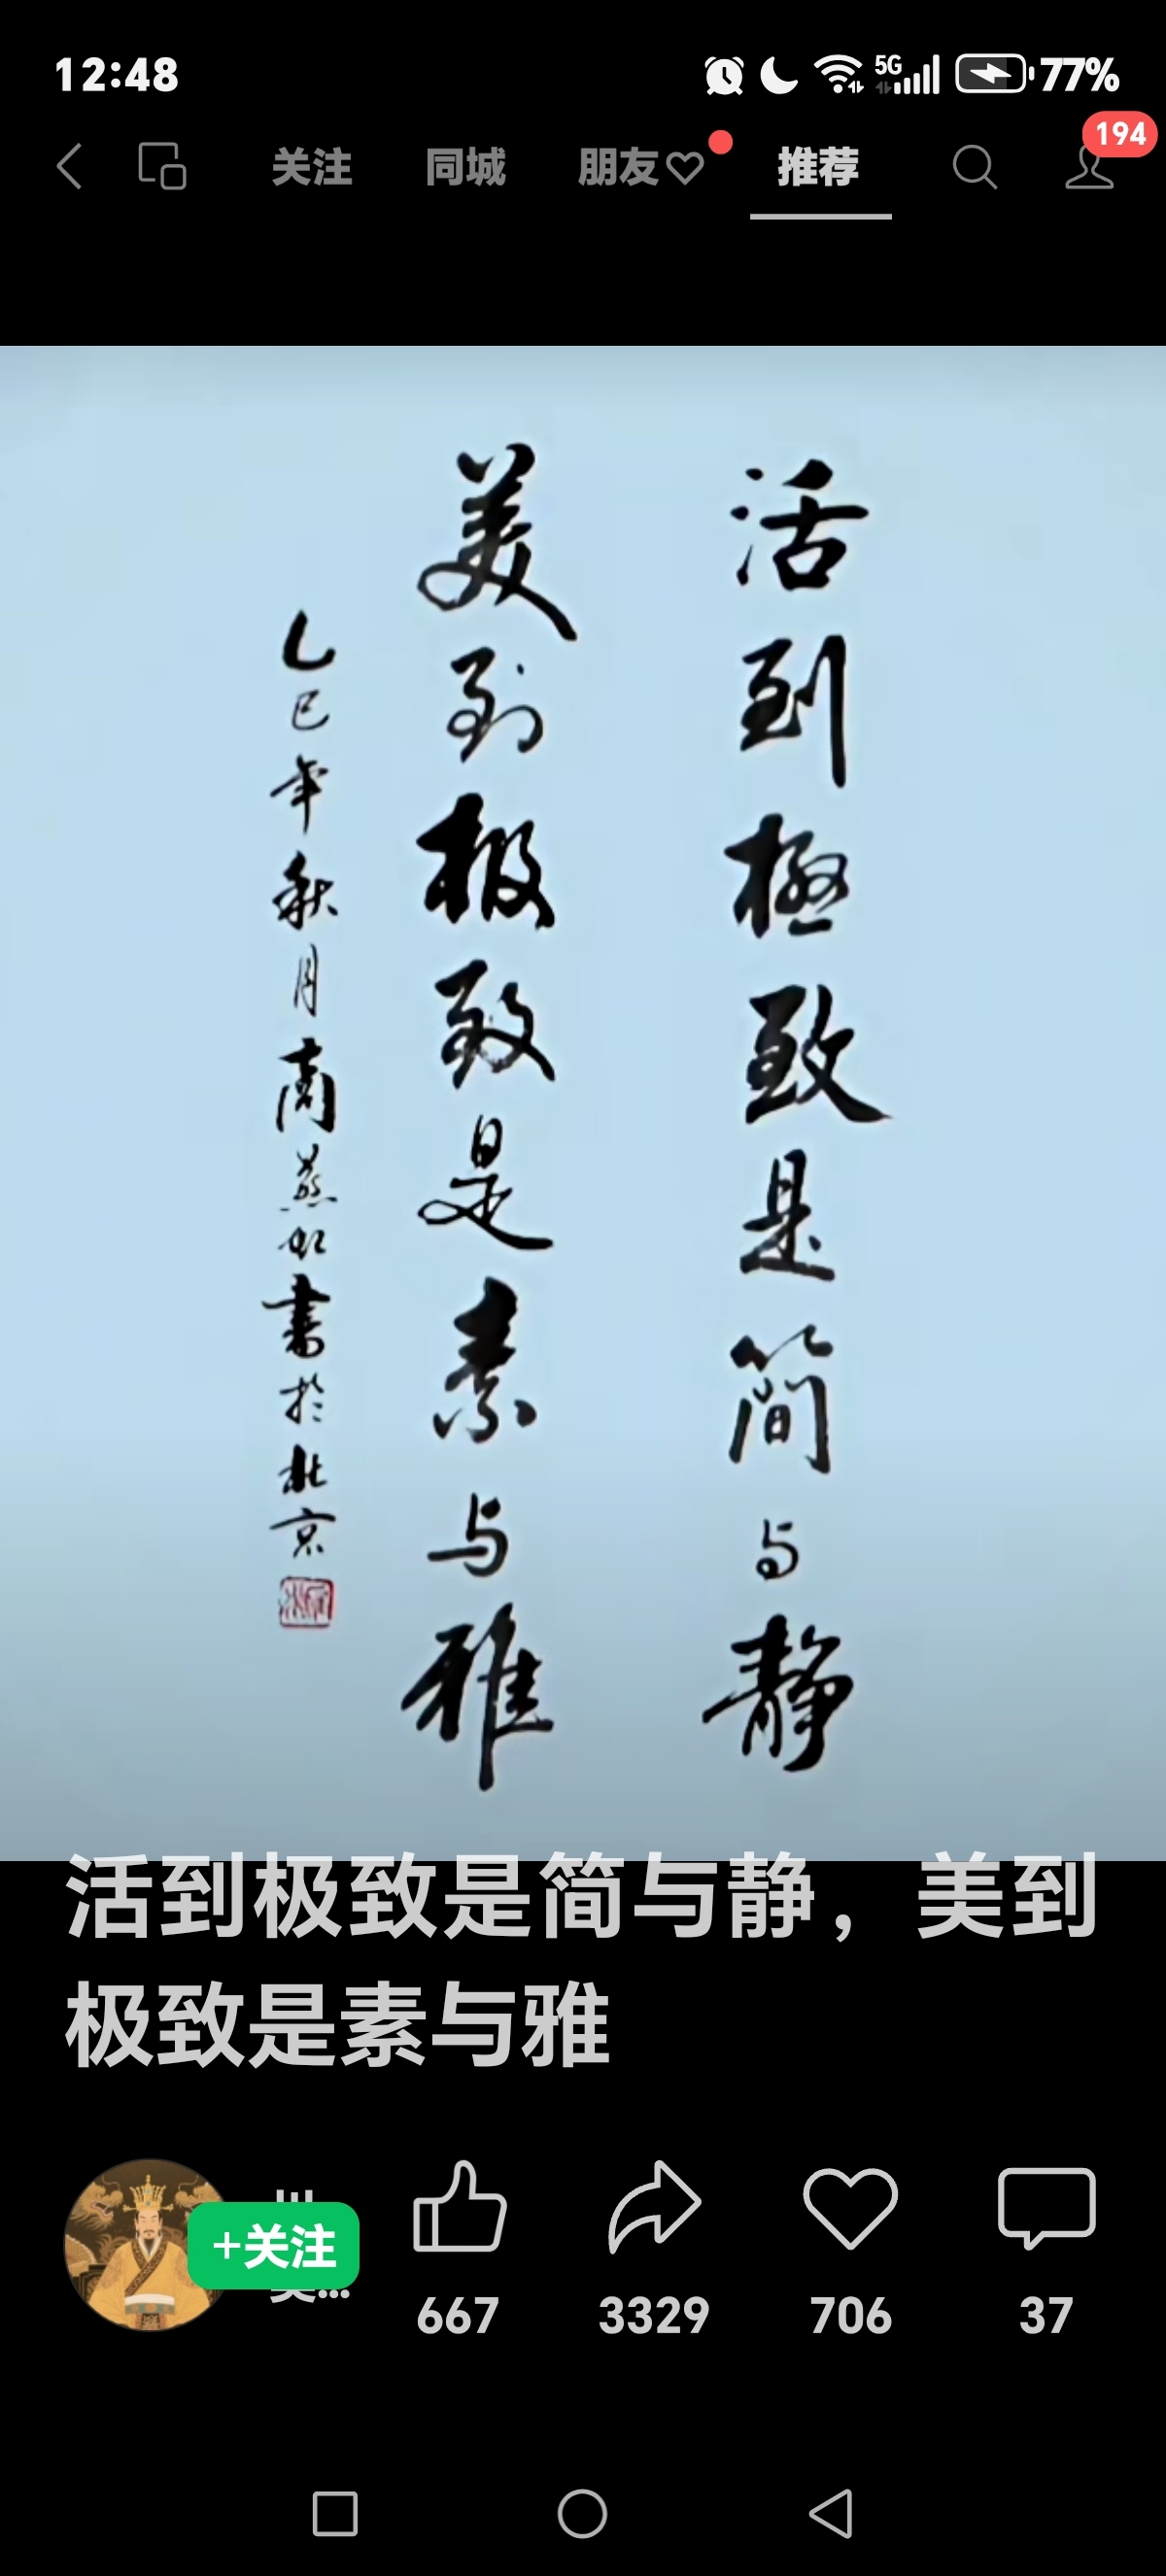 12:48
5G
77%
关注
同城
朋友
推荐
194
活到極致是简与静
美到极致是素与雅
乙巳年秋月商燕虹書於北京
活到极致是简与静，美到
极致是素与雅
+关注
667
3329
706
37